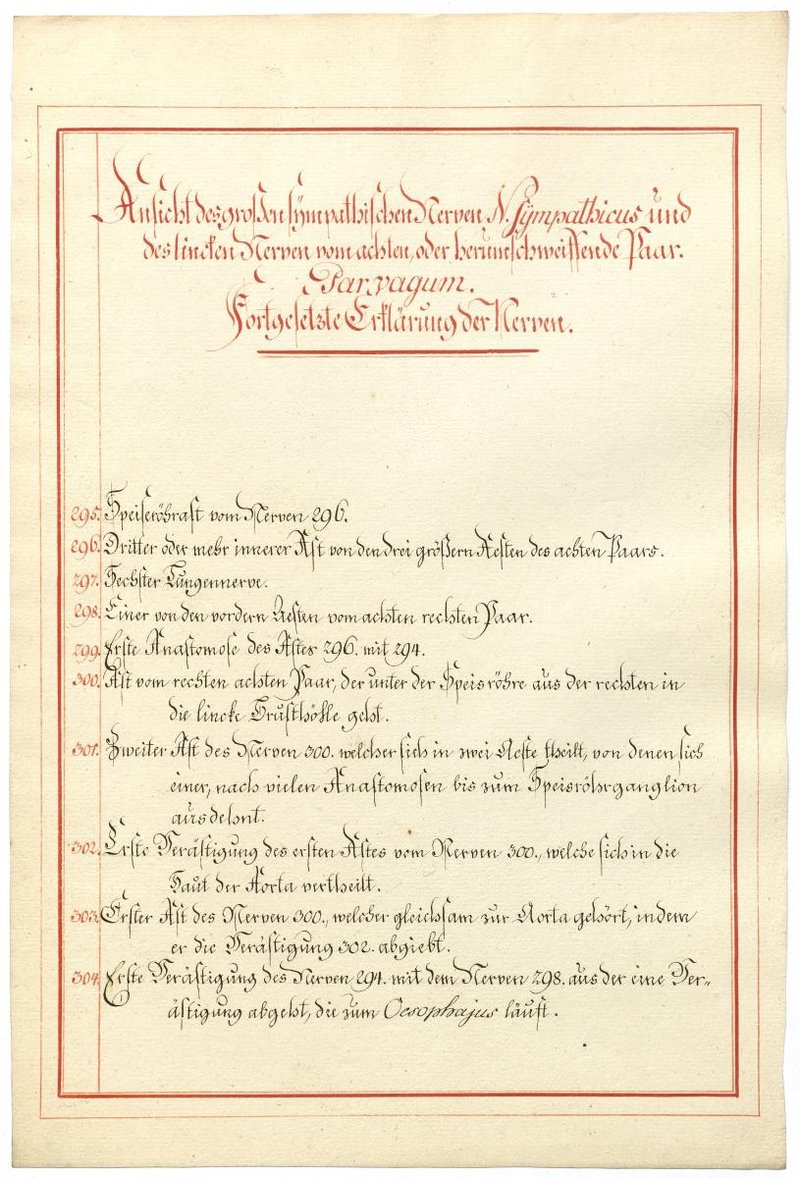 Ansicht des großen sympathischen Nerven N. Sympathicus und
des lincken Nerven vom achten, oder herumschweiffende Paar.
Par vagum.
Fortgesetzte Erklärung der Nerven.
295. Speiseröhrast vom Nerven 296.
296. Dritter oder mehr innerer Ast von den drei größern Aesten des achten Paars.
297. Sechster Lungennerve.
298. Einer von den vordern Aesten vom achten rechten Paar.
299. Erste Anastomose des Astes 296. mit 294.
300. Ast vom rechten achten Paar, der unter der Speisröhre aus der rechten in
die lincke Brusthöhle geht.
301. Zweiter Ast des Nerven 300. welcher sich in zwei Aeste theilt, von denen sich
einer, nach vielen Anastomosen bis zum Speisröhrganglion
ausdehnt.
302. Erste Verästigung des ersten Astes vom Nerven 300., welche sich in die
Haut der Aorta vertheilt.
303. Erster Ast des Nerven 300., welcher gleichsam zur Aorta gehört, indem
er die Verästigung 302. abgiebt.
304. Erste Verästigung des Nerven 294. mit dem Nerven 298. aus der eine Ver„
ästigung abgeht, die zum Oesophajus läuft.